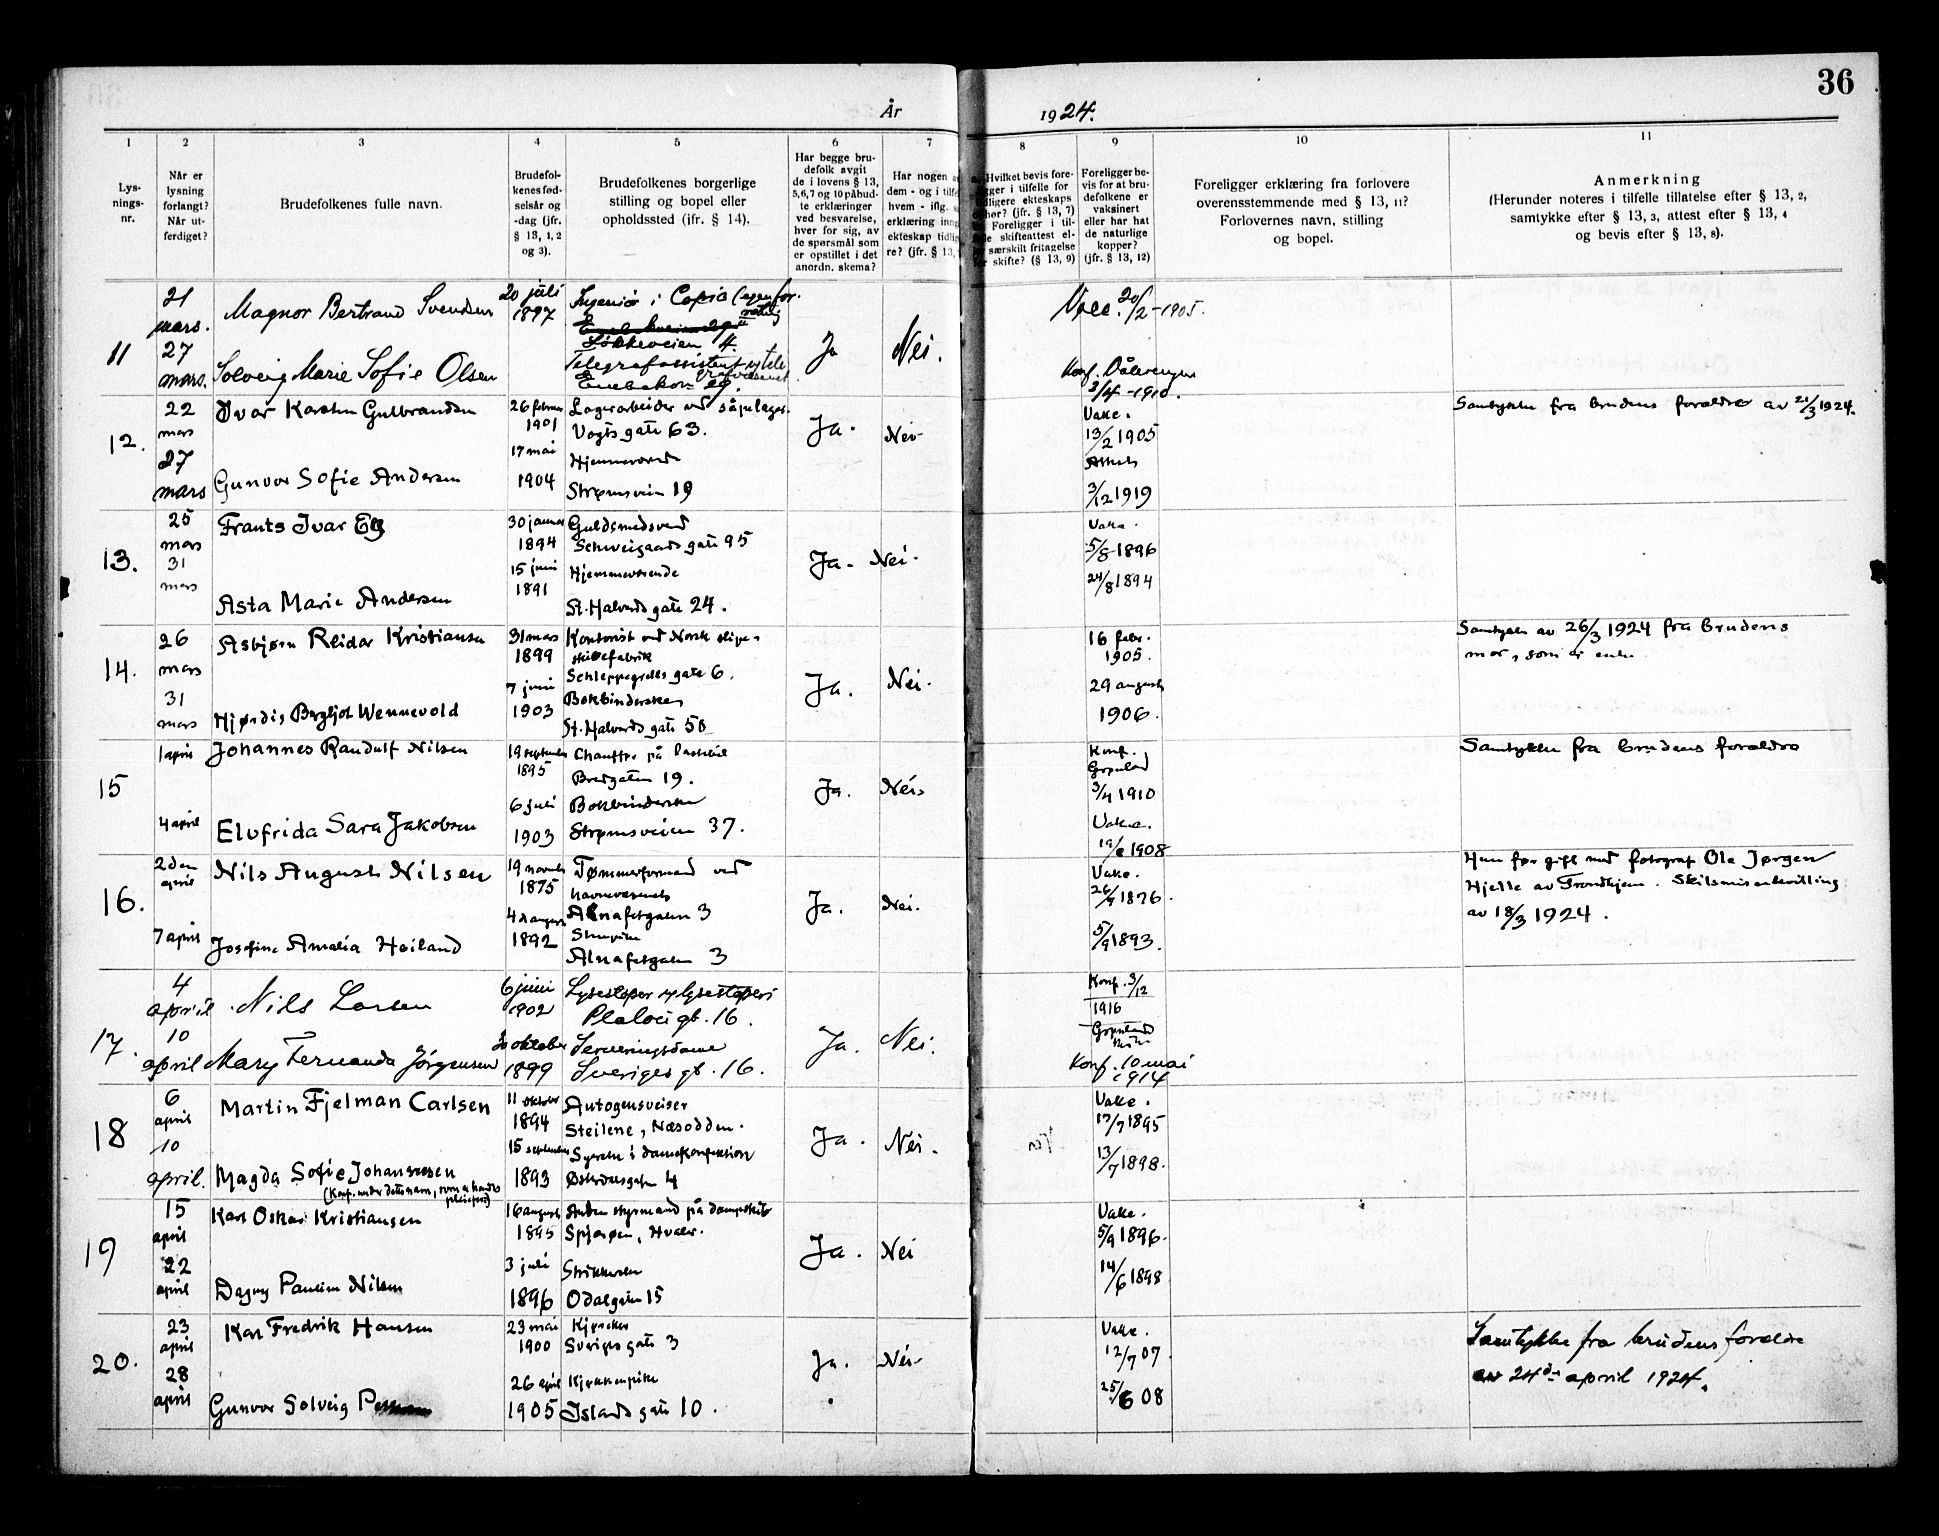 36
År 1924.
1
2
3
4
5
6
7
8
9
10
11
Lys-
nings-
nr.
Når er
lysning
forlangt?
Når ut-
ferdiget?
Brudefolkenes fulle navn.
Brudefol-
kenes fød-
selsår og
-dag (jfr.
§ 13, 1, 2
og 3).
Brudefolkenes borgerlige
stilling og bopel eller
opholdssted (jfr. § 14).
Har begge bru-
defolk avgit
de i lovens § 13,
5,6,7 og 10 påbud-
te erklæringer
ved besvarelse,
hver for sig, av
de spørsmål som
er opstillet i det
anordn. skema?
Har nogen a
dem - og i tilfe
hvem - iflg.
erklæring inng
ekteskap tidlig
re? (jfr. § 13,
Hvilket bevis fore-
gger i tilfelle for
dligere ekteskaps
hør? (jfr. § 13, 7)
Foreligger i til-
le skifteattest el-
særskilt fritagelse
skifte? (§ 13, 9)
Foreligger be-
vis for at bru-
defolkene er
vaksinert
eller har hat
de naturlige
kopper?
(jfr. § 13, 12)
Foreligger erklæring fra forlovere
overensstemmende med § 13, 11?
Forlovernes navn, stilling
og bopel.
Anmerkning
(Herunder noteres i tilfelle tillatelse efter § 13, 2,
samtykke efter § 13, 3, attest efter § 13, 4
og bevis efter § 13, 8).
11
21 mars.
27 mars.
Magnor Bertrand Svendsen
20 juli 1897
Ingeniør i
Løkkeveien 4.
Solveig Marie Sofie Olsen
Telegrafassistent v/ tele
grafvesenet
Enebakkv. 29.
Ja
Nei.
Vacc. 20/2 - 1905.
Konf. Vålerengen
3/4 - 1910.
12.
22 mars
27 mars
Ivar Karsten Gulbrandsen
26 februar 1901
Lagerarbeider ved såpelager.
Vogts gate 63.
Gunvor Sofie Andersen
17 mai 1904
Hjemmeværende
Strømsveien 19
Ja.
Nei.
Vakc.
13/2 1905
Attest
3/12 1919
Samtykke fra brudens forældre av 21/3 1924.
13.
25 mars
31 mars
Frants Ivar Eg
30 januar 1894
Guldsmedsvend
Schweigaards gate 95
Asta Marie Andersen
15 juni 1891
Hjemmeværende
St. Halvards gate 24.
Ja.
Nei.
Vakc.
5/8 1896
24/8 1894
14.
26 mars
31 mars
Asbjørn Reidar Kristiansen
31 mars 1899
Kontorist ved Norsk slipe-
skivefabrik
Schleppegrells gate 6.
Hjørdis Bergljot Wennevold
7 juni 1903
Bokbinderske
St. Halvards gate 50
Ja.
Nei.
16 febr.
1905.
29 august
1906.
Samtykke av 26/3 1924 fra brudens
mor, som er enke
15
1 april
4 april
Johannes Randulf Nilsen
19 september 1895
Chauffør på lastebil
Bredgaten 19.
Elvfrida Sara Jakobsen
6 juli 1903
Bokbinderske
Strømsveien 37.
Ja.
Nei.
Konf.
Grønland
3/4 1910
Vakc.
1908
Samtykke fra brudens forældre
16.
2den april
7 april
Nils August Nilsen
19 novemb 1875
Tømmerformand ved
havnevæsenet
Alnafetgaten 3
Josefine Amalia Heiland
4 august 1892
Alnafetgaten 3
Ja.
Nei.
Vakc.
26/7 1876.
5/9 1893.
Hun før gift med fotograf Ole Jørgen
Hjelle av Trondhjem. Skilsmissebevilling
av 18/3 1924.
17.
4 april
10 april
Nils Larsen
6 juni 1902
Lysestøper v/ lysestøperi
Platou gt. 16.
Mary Fernanda Jørgensen
oktober 1899
Serveringsdame
Sveriges gt. 16.
Ja.
Nei.
Konf. 3/12
1916
Grønland
Konf. 10 mai
1914
18
6 april
10 april.
Martin Fjelman Carlsen
11 oktober 1894
Autogensveiser
Steilene, Næsodden.
Magda Sofie Johannesen
(Konf. under dette navn, som er hendes
pleiefars)
15 september 1893
Syerske i damekonfektion
Østerdalsgaten 4
Ja.
Nei.
Vakc.
17/7 1895
13/7 1898.
19
15 april
22 april
Karl Oskar Kristiansen
16 august 1895
Anden styrmand på dampskib
Spjærøen, Hvaler.
Dagny Pauline Nilsen
3 juli 1896
Strikkerske
Odalgaten 15
Ja.
Nei
Vakc.
5/9 1896.
14/6 1898
20.
23 april
28 april
Karl Fredrik Hansen
23 mai 1900
Kjørekar
Sveriges gate 3
Gunvor Solveig
26 april 1905
Kjøkkenpike
Islands gate 10.
Ja.
Nei.
Vakc.
12/7 07.
25/6 08
Samtykke fra brudens forældre
av 24de april 1924.